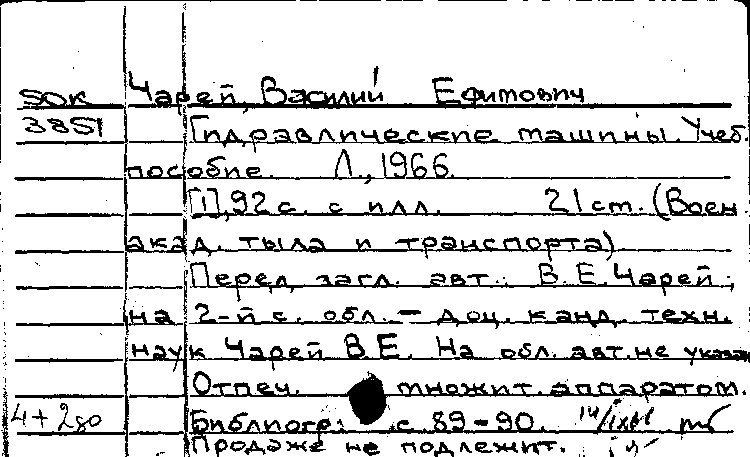 50к Чарей, Василий Ефимович
3851 Гидравлические машины. Учеб.
пособие. Л., 1966.
[1], 92 с. с илл. 21 см. (Воен.
акад. тыла и транспорта)
Перед загл. авт.: В.Е. Чарей;
на 2-й с. обл. – доц. канд. техн.
наук Чарей В.Е. На обл. авт. не указан
Отпеч. множит. аппаратом.
4+2до Библиогр.: с. 89-90.
Продаже не подлежит.